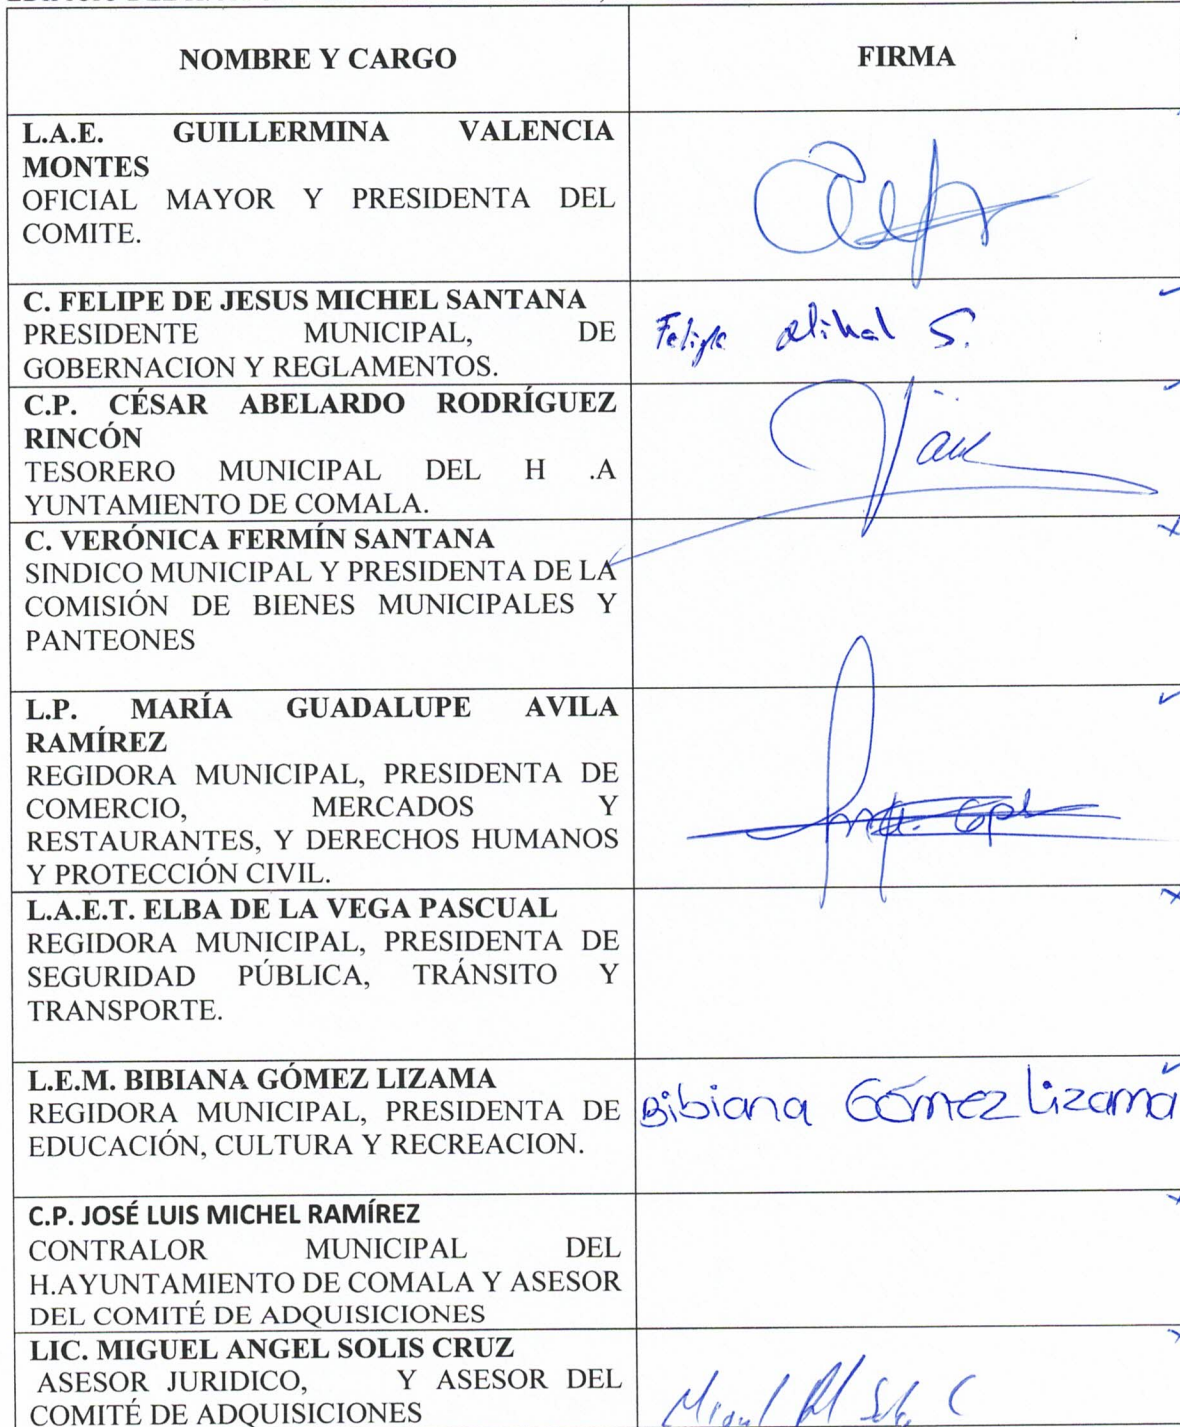 NOMBRE Y CARGO
FIRMA
L.A.E. GUILLERMINA VALENCIA
MONTES
OFICIAL MAYOR Y PRESIDENTA DEL
COMITE.
C. FELIPE DE JESUS MICHEL SANTANA
PRESIDENTE MUNICIPAL, DE
GOBERNACION Y REGLAMENTOS.
Felipe S.
C.P. CÉSAR ABELARDO RODRÍGUEZ
RINCÓN
TESORERO MUNICIPAL DEL H .A
YUNTAMIENTO DE COMALA.
C. VERÓNICA FERMÍN SANTANA
SINDICO MUNICIPAL Y PRESIDENTA DE LA
COMISIÓN DE BIENES MUNICIPALES Y
PANTEONES
L.P. MARÍA GUADALUPE AVILA
RAMÍREZ
REGIDORA MUNICIPAL, PRESIDENTA DE
COMERCIO, MERCADOS Y
RESTAURANTES, Y DERECHOS HUMANOS
Y PROTECCIÓN CIVIL.
L.A.E.T. ELBA DE LA VEGA PASCUAL
REGIDORA MUNICIPAL, PRESIDENTA DE
SEGURIDAD PÚBLICA, TRÁNSITO Y
TRANSPORTE.
L.E.M. BIBIANA GÓMEZ LIZAMA
REGIDORA MUNICIPAL, PRESIDENTA DE
EDUCACIÓN, CULTURA Y RECREACION.
Bibiana Gómez Lizama
C.P. JOSÉ LUIS MICHEL RAMÍREZ
CONTRALOR MUNICIPAL DEL
H.AYUNTAMIENTO DE COMALA Y ASESOR
DEL COMITÉ DE ADQUISICIONES
LIC. MIGUEL ANGEL SOLIS CRUZ
ASESOR JURIDICO, Y ASESOR DEL
COMITÉ DE ADQUISICIONES